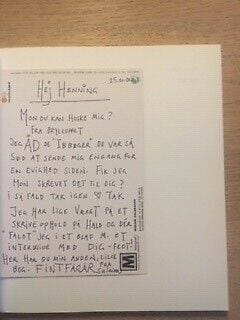 Hej Henning
Mon du kan huske mig?
Fra brylluppet
Jeg ÅD de "Ibbøger" du var så
sød at sende mig engang for
en evighed siden. Fik jeg
mon skrevet det til dig?
I så fald tak igen ♡ Tak
Jeg har lige været på et
skriveophold på Hald og der
"faldt" jeg i et blad m. et
interview med dig - fedt!
Her har du min anden, lille
bog. FINTFARAR fra
M